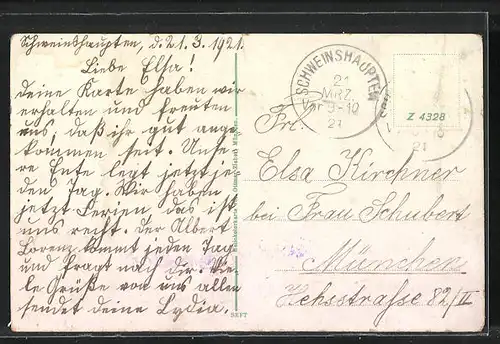 Schweinshaupten, d. 21.3.1921.
Liebe Elsa!
Deine Karte haben wir
erhalten und freuten
uns, daß ihr gut ange
kommen seit. Unse
re Ente legt jetzt je
den Tag. Wir haben
jetzt Ferien, das ist
uns recht. Der Albert
Lorenz kommt jeden Tag
und fragt nach dir. Vie
le Grüße von uns allen
sendet deine Lydia.
SCHWEINSHAUPTEN
21
MRZ.
Vor 9-10
21
Z 4328
Frl.
Elsa Kirchner
bei Frau Schubert
München
82/II